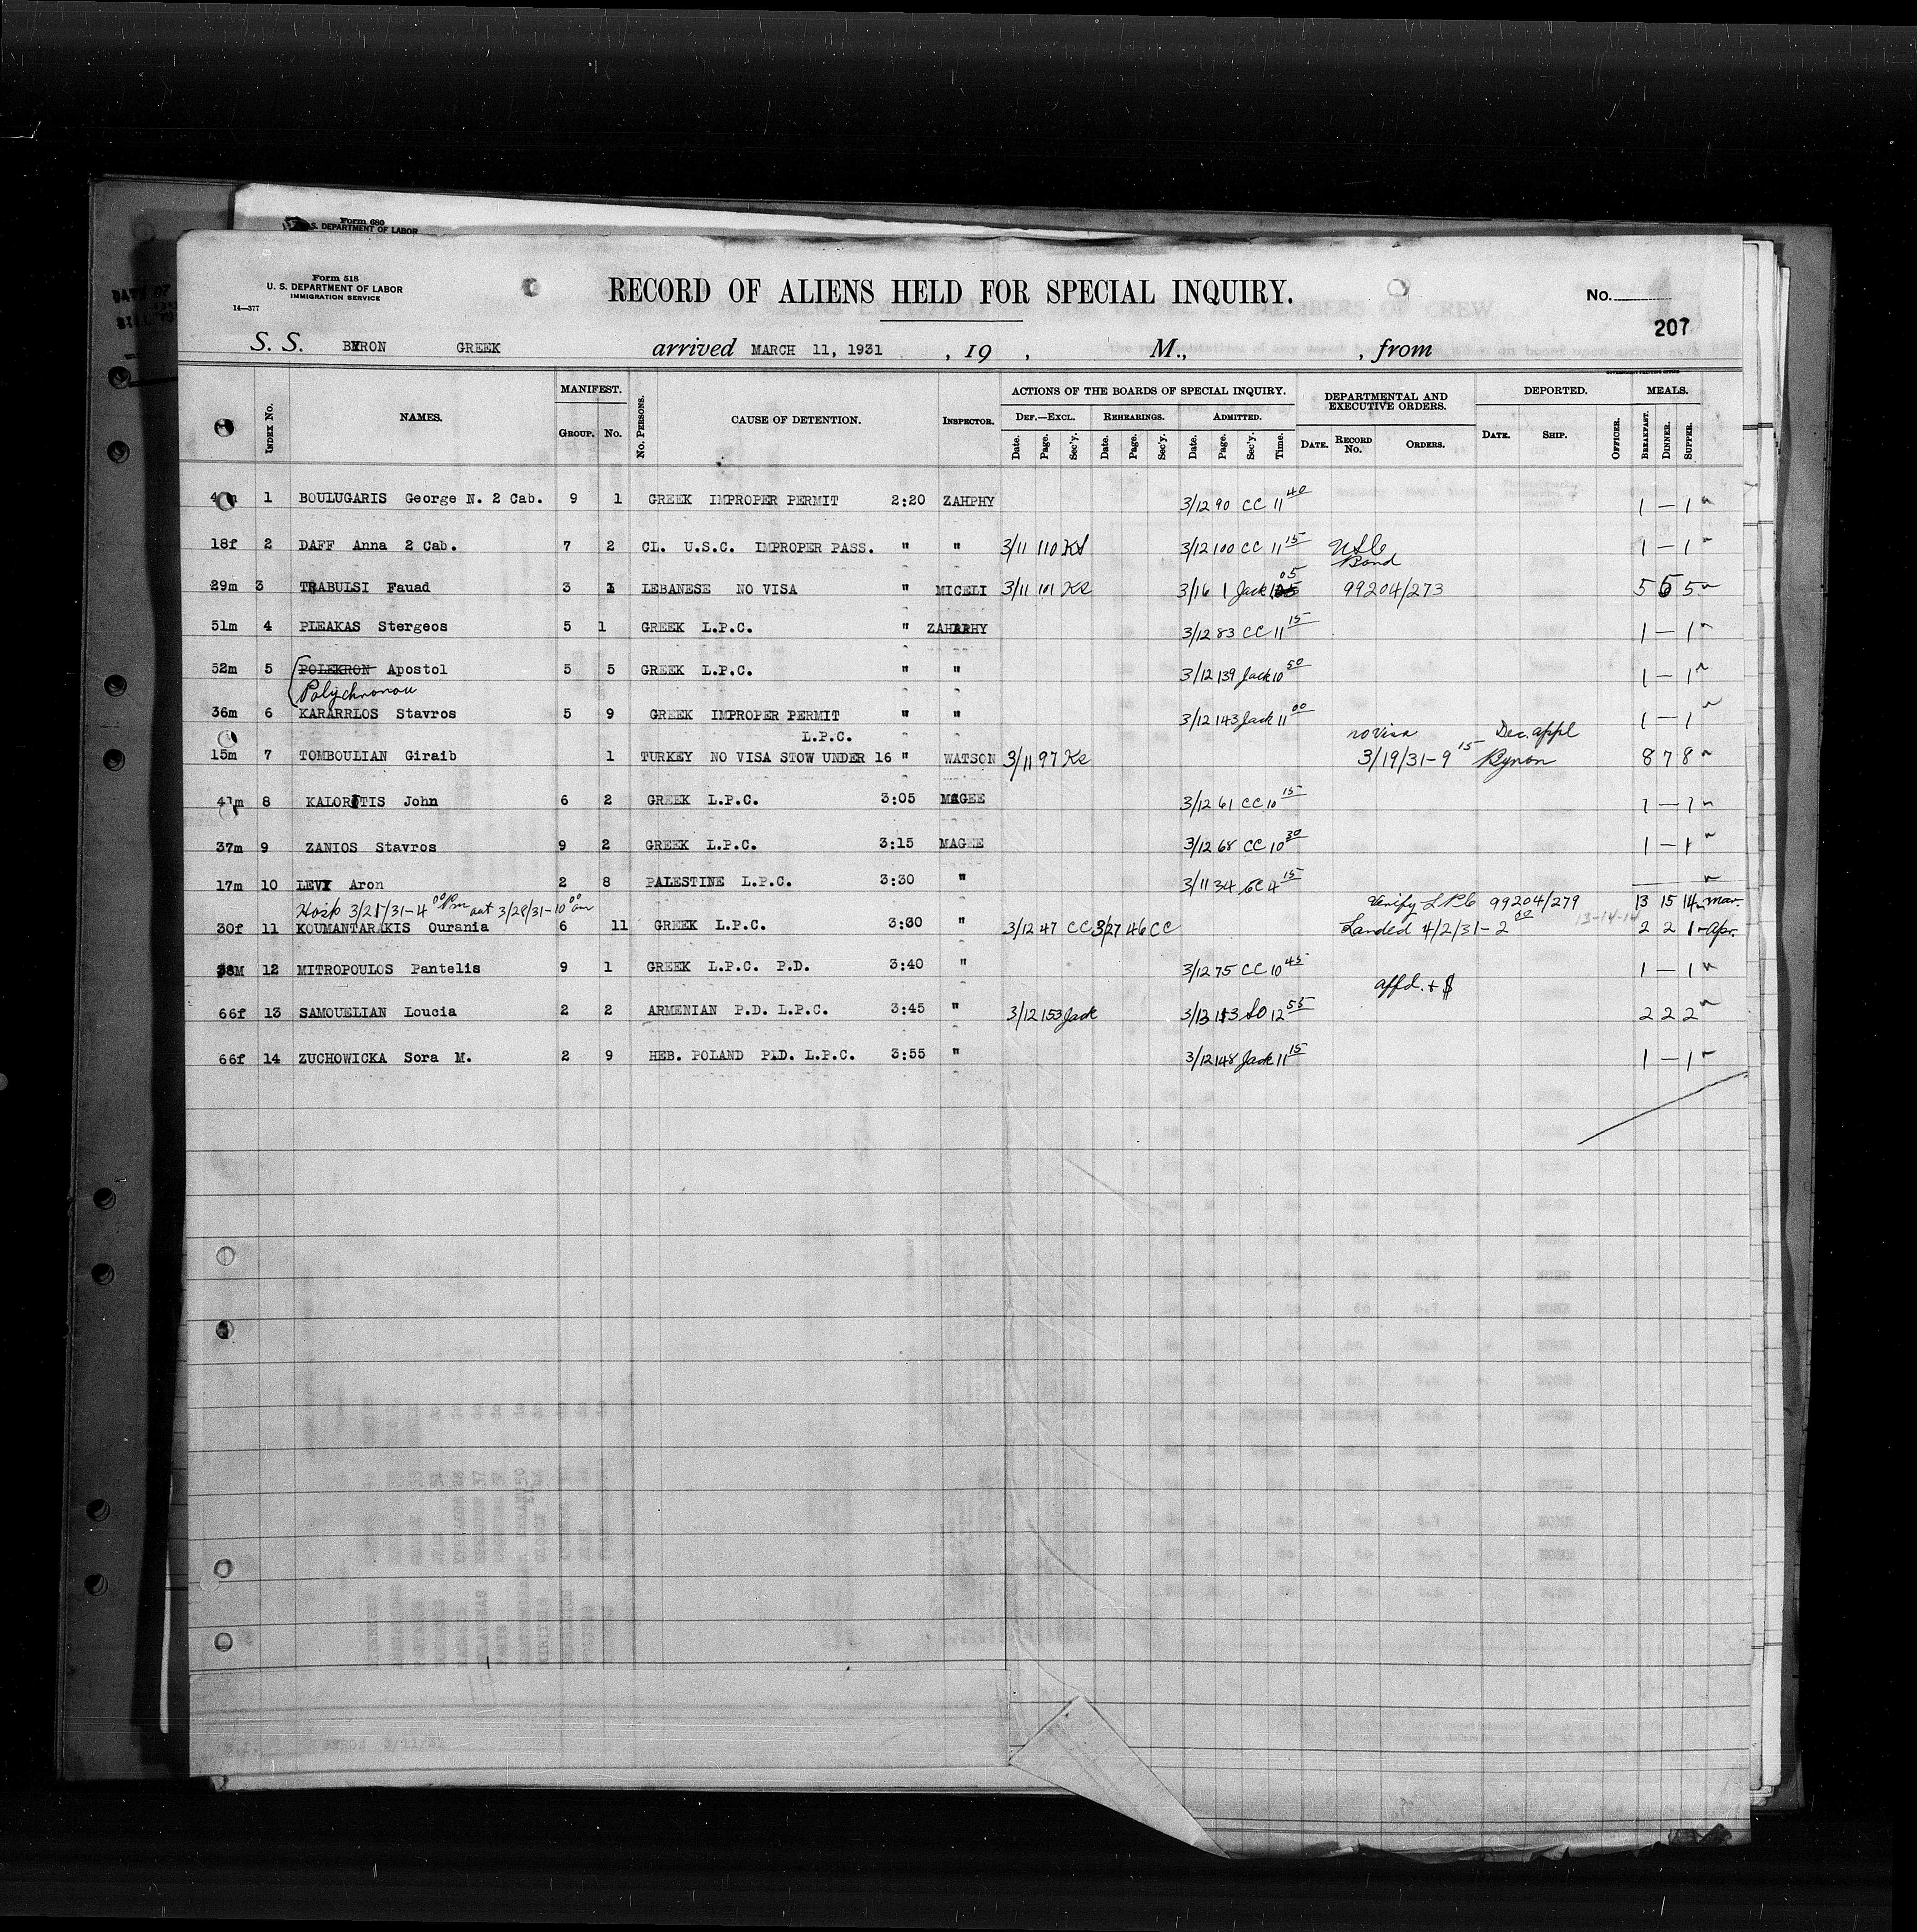 Form 680
S. DEPARTMENT OF LABOR
Form 518
U. S. DEPARTMENT OF LABOR
IMMIGRATION SERVICE
14—377
RECORD OF ALIENS HELD FOR SPECIAL INQUIRY.
No.
207
S. S. BYRON GREEK arrived MARCH 11, 1931 , 19 , M., , from
INDEX No. NAMES. MANIFEST. GROUP. No. No. PERSONS. CAUSE OF DETENTION. INSPECTOR. ACTIONS OF THE BOARDS OF SPECIAL INQUIRY. DEF.—EXCL. Date. Page. Sec'y. REHEARINGS. Date. Page. Sec'y. ADMITTED. Date. Page. Sec'y. Time. DEPARTMENTAL AND EXECUTIVE ORDERS. DATE. RECORD No. ORDERS. DEPORTED. DATE. SHIP. OFFICER. MEALS. BREAKFAST. DINNER. SUPPER.
1 BOULUGARIS George N. 2 Cab. 9 1 GREEK IMPROPER PERMIT 2:20 ZAHPHY 3/12 90 CC 11 40 1 — 1
18f 2 DAFF Anna 2 Cab. 7 2 CL. U.S.C. IMPROPER PASS. " " 3/11 110 3/12 100 CC 11 15 Bond 1 — 1
29m 3 TRABULSI Fauad 3 1 LEBANESE NO VISA " MICELI 3/11 101 Ks 3/16 1 Jack 1 05 99204/273 5 5 5
51m 4 PLEAKAS Stergeos 5 1 GREEK L.P.C. " ZAHARHY 3/12 83 CC 11 15 1 — 1
52m 5 POLEKRON Apostol 5 5 GREEK L.P.C. " " 3/12 139 Jack 10 50 1 — 1
Polychronou
36m 6 KARARRLOS Stavros 5 9 GREEK IMPROPER PERMIT " " 3/12 143 Jack 11 00 1 — 1
L.P.C. no visa Dec. appl
15m 7 TOMBOULIAN Giraib 1 TURKEY NO VISA STOW UNDER 16 " WATSON 3/11 97 Ks 3/19/31-9 15 Byron 8 7 8
41m 8 KALORITIS John 6 2 GREEK L.P.C. 3:05 MAGEE 3/12 61 CC 10 15 1 — 1
37m 9 ZANIOS Stavros 9 2 GREEK L.P.C. 3:15 MAGEE 3/12 68 CC 10 30 1 — 1
17m 10 LEVY Aron 2 8 PALESTINE L.P.C. 3:30 " 3/11 34 CC 4 15
Hosp 3/21/31-4 00 Pm out 3/28/31-10 00 am Verify LPC 99204/279 13 15 14 Mar.
30f 11 KOUMANTARAKIS Ourania 6 11 GREEK L.P.C. 3:30 " 3/12 47 CC 3/27 46 CC Landed 4/2/31-2 00 13-14-14 2 2 1 Apr.
38M 12 MITROPOULOS Pantelis 9 1 GREEK L.P.C. P.D. 3:40 " 3/12 75 CC 10 45 1 — 1
affd. + $
66f 13 SAMOUELIAN Loucia 2 2 ARMENIAN P.D. L.P.C. 3:45 " 3/12 153 Jack 3/13 153 SO 12 55 2 2 2
66f 14 ZUCHOWICKA Sora M. 2 9 HEB. POLAND P.D. L.P.C. 3:55 " 3/12 148 Jack 11 15 1 — 1
BYRON 3/11/31